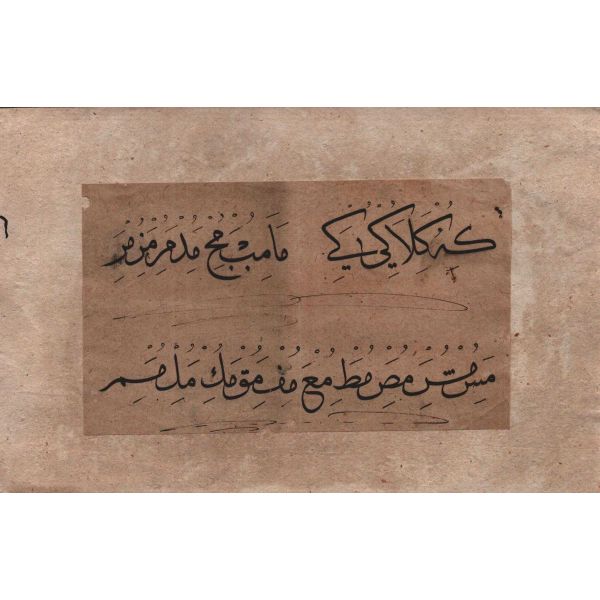 كه كلا كى كے ما مب مج مد مر مر مر
مس مس مص مط مع مف مق مك مل مم